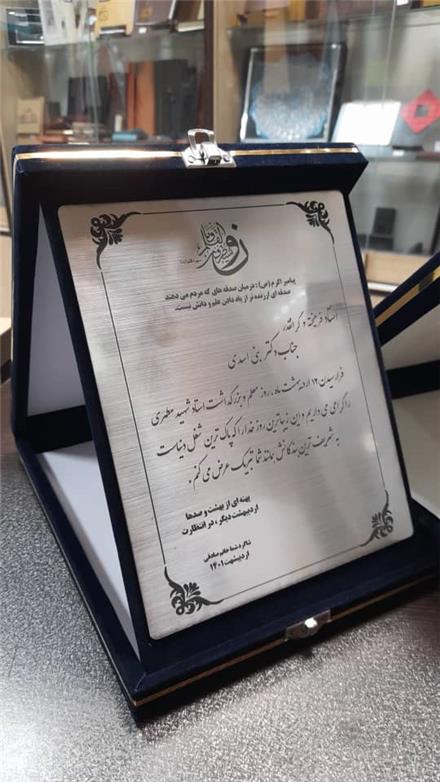 پیامبر اکرم (ص): در میان صدقه های که مردم می دهند
صدقه ای ارزنده تر از یاد دادن علم و دانش نیست.
استاد فرهیخته و گرانقدر
جناب دکتر بنی اسدی
فرا رسیدن ۱۲ اردیبهشت ماه، روز معلم و بزرگداشت استاد شهید مطهری
را گرامی می داریم و این زیباترین روز خدا را که پاک ترین شغل دنیاست
به شریف ترین بندگانش مانند شما تبریک عرض می کنم.
پهنه ای از بهشت و صدها
اردیبهشت دیگر، در انتظارت
شاگرد شما خانم صادقی
اردیبهشت ۱۴۰۱